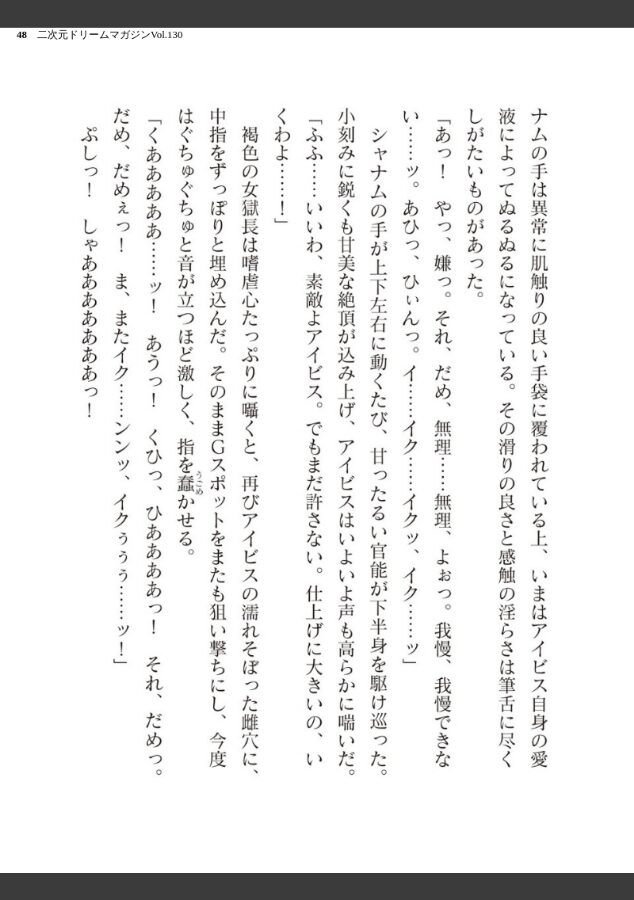 48 二次元ドリームマガジンVol.130
ナムの手は異常に肌触りの良い手袋に覆われている上、いまはアイビス自身の愛
液によってぬるぬるになっている。その滑りの良さと感触の淫らさは筆舌に尽く
しがたいものがあった。
「あっ！　やっ、嫌っ。それ、だめ、無理……無理、よぉっ。我慢、我慢できな
い……ッ。あひっ、ひぃんっ。イ……イク……イクッ、イク……ッ」
　シャナムの手が上下左右に動くたび、甘ったるい官能が下半身を駆け巡った。
小刻みに鋭くも甘美な絶頂が込み上げ、アイビスはいよいよ声も高らかに喘いだ。
「ふふ……いいわ、素敵よアイビス。でもまだ許さない。仕上げに大きいの、い
くわよ……！」
　褐色の女獄長は嗜虐心たっぷりに囁くと、再びアイビスの濡れそぼった雌穴に、
中指をずっぽりと埋め込んだ。そのままＧスポットをまたも狙い撃ちにし、今度
はぐちゅぐちゅと音が立つほど激しく、指を蠢うごめかせる。
「くあああああ……ッ！　あうっ！　くひっ、ひああああっ！　それ、だめっ。
だめ、だめぇっ！　ま、またイク……ンンッ、イクぅぅぅ……ッ！」
　ぷしっ！　しゃああああああああっ！